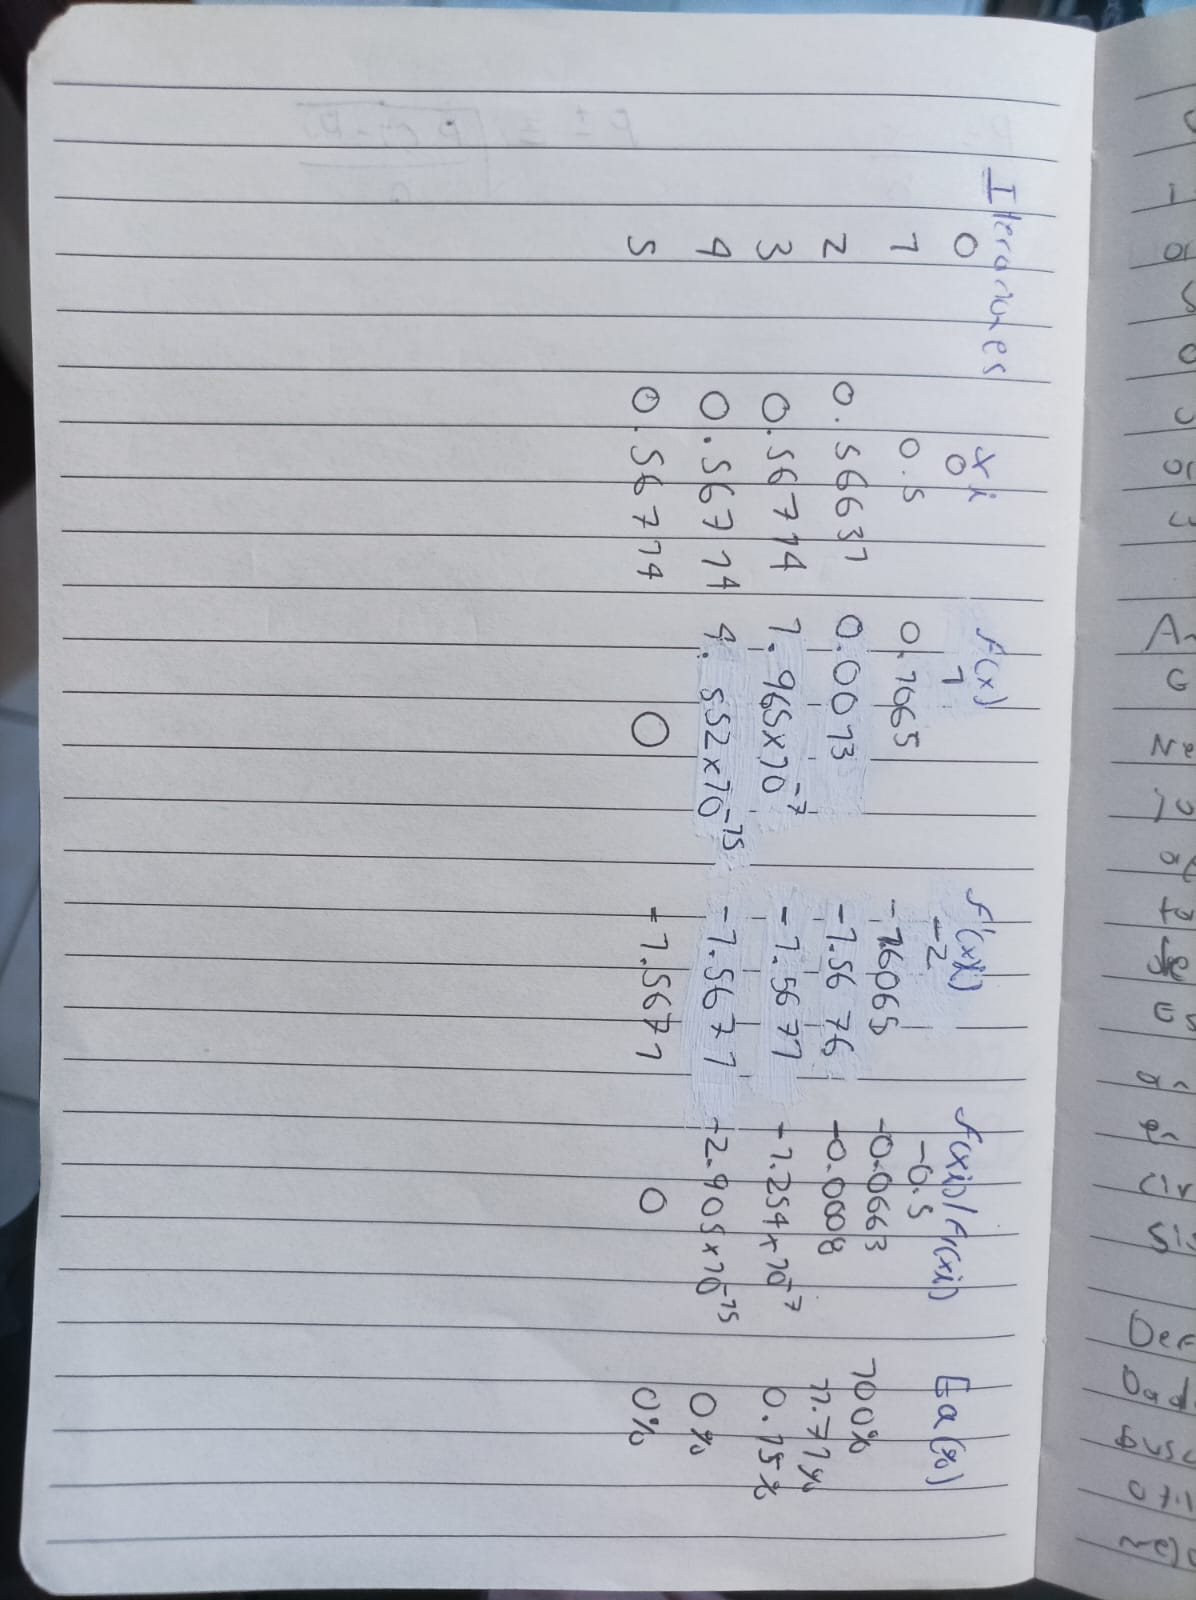 Iterações xi f(x) f'(xi) f(xi)/f'(xi) Ea(%)
0 0 1 -2 -0.5
1 0.5 0.1065 -1.6065 -0.0663 100%
2 0.56631 0.0013 -1.5676 -0.0008 11.71%
3 0.56714 1.965x10⁻⁷ -1.5671 -1.254x10⁻⁷ 0.15%
4 0.56714 4.552x10⁻¹⁵ -1.5671 -2.905x10⁻¹⁵ 0%
5 0.56714 0 -1.5671 0 0%